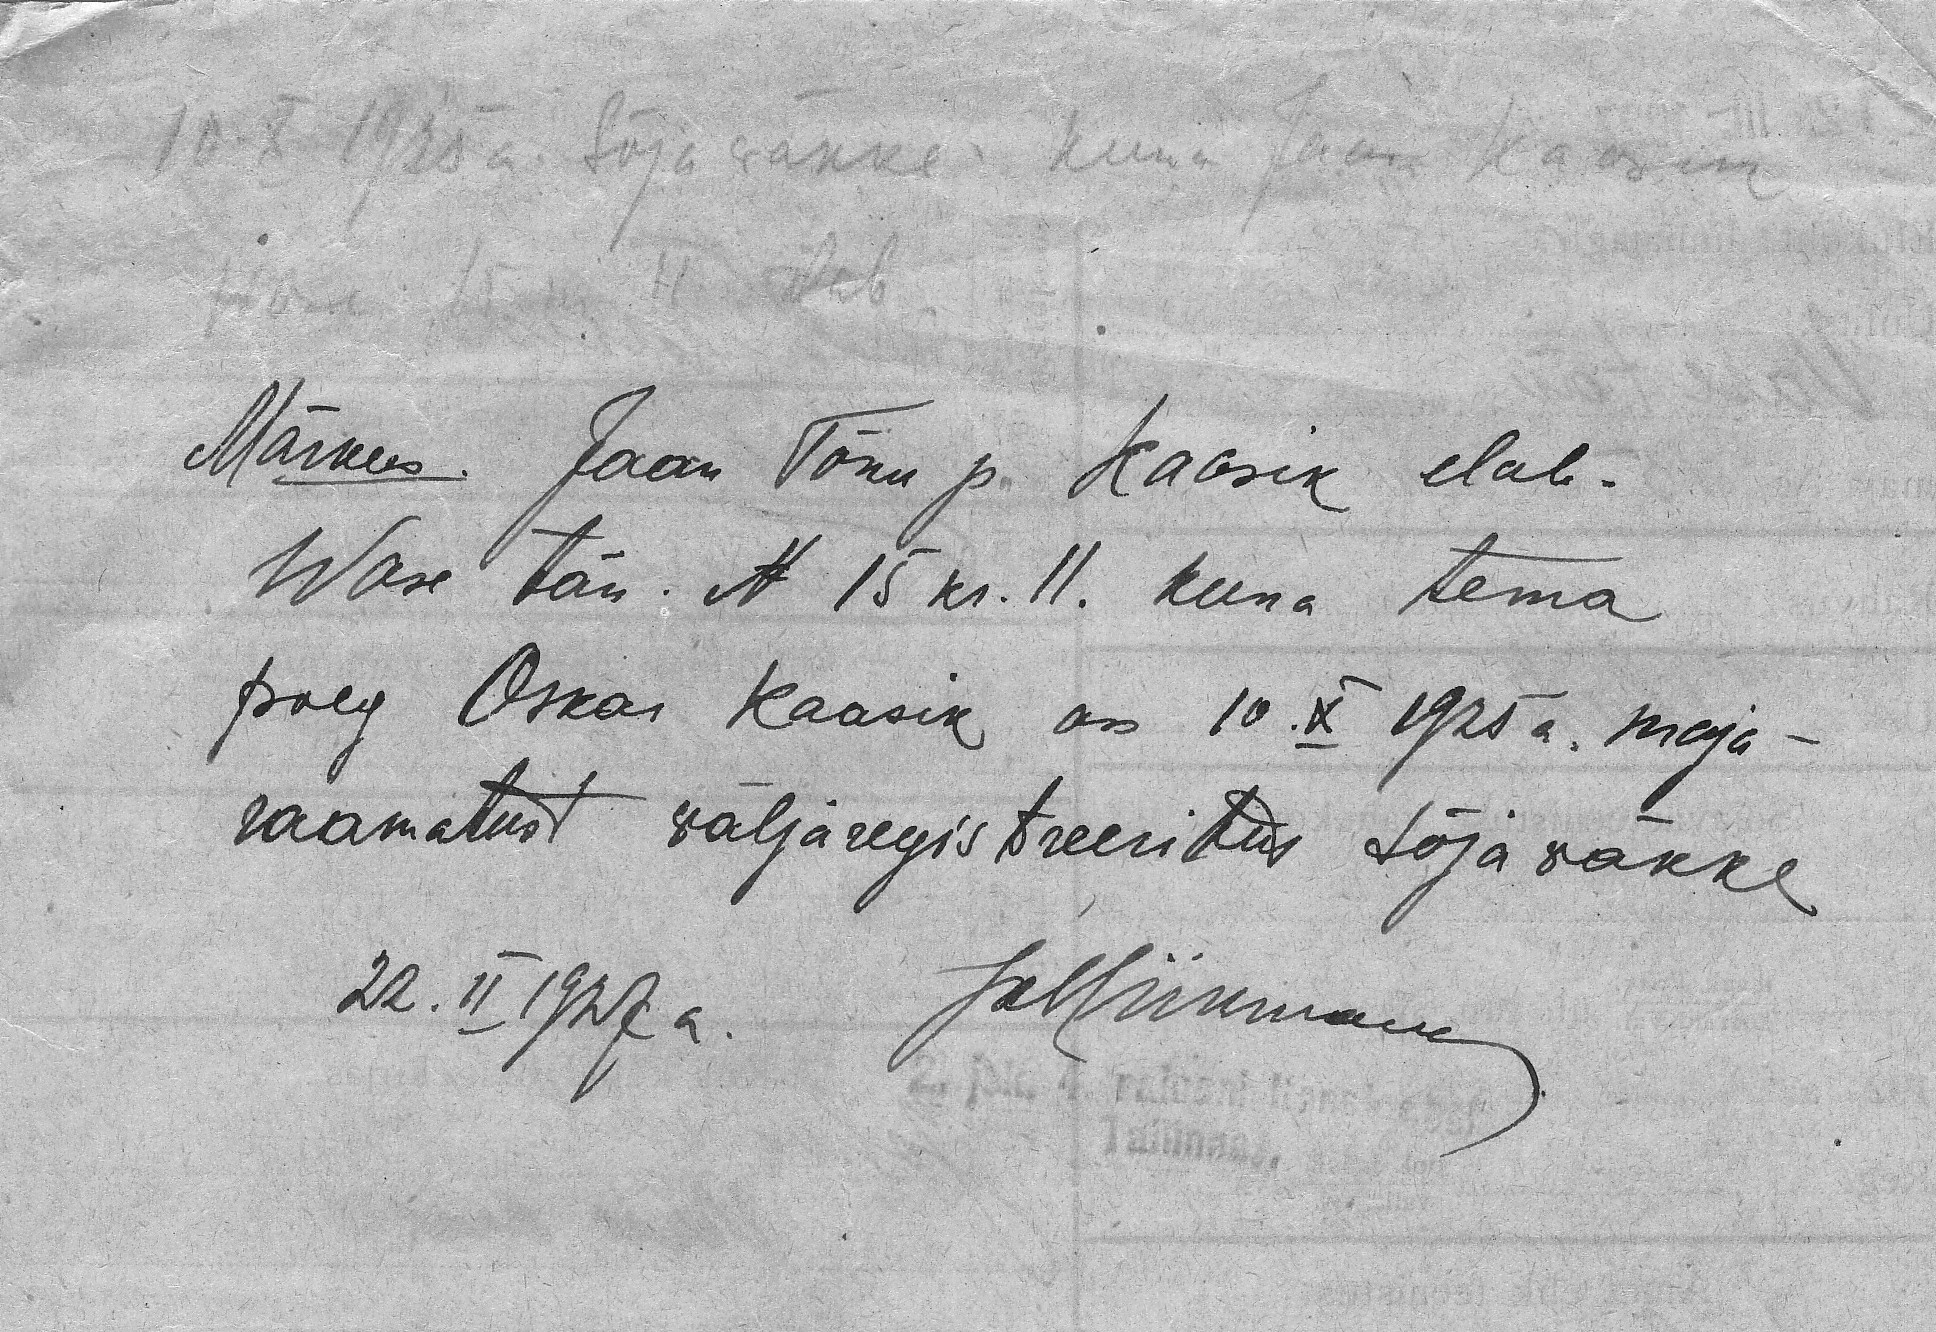 10.X 1925 a. Sõjawäkke kuna Jaan Kaasik
Wase 15 11 elab
Märkus. Jaan Tõnu p. Kaasik elab.
Wase tän. № 15 kr. 11. kuna tema
poeg Oskar Kaasik on 10.X 1925 a. maja-
raamatust wäljaregistreeritus sõjawäkke
22.II 1927 a.
2. jsk. 4. rajooni
Tallinnas.